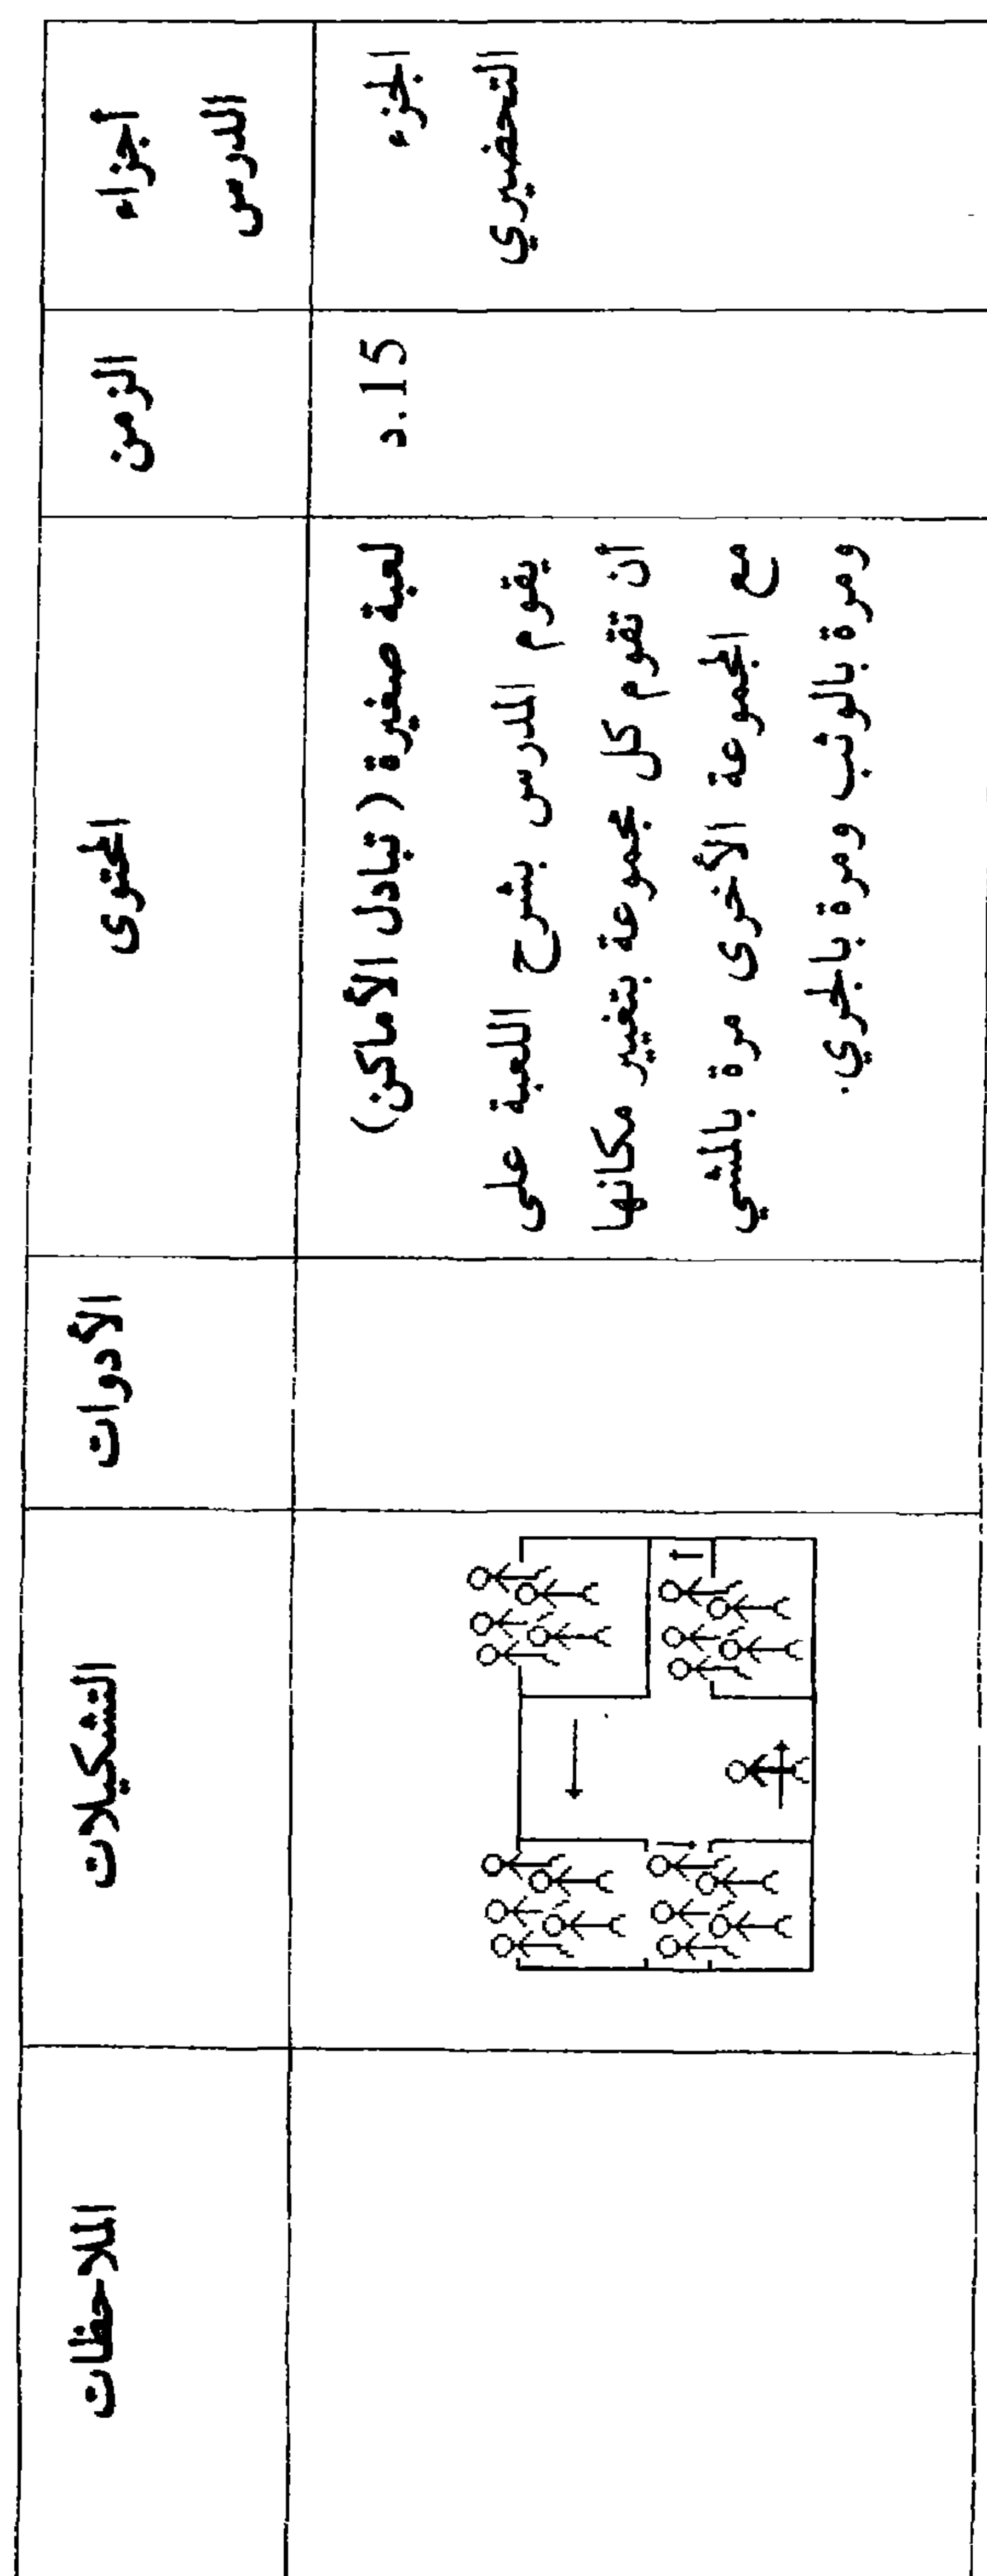 أجزاء
الدرس
الزمن
المحتوى
الأدوات
التشكيلات
الملاحظات
الجزء
التحضيري
15.د
لعبة صغيرة ( تبادل الأماكن)
يقوم المدرس بشرح اللعبة على
أن تقوم كل مجموعة بتغيير مكانها
مع المجموعة الأخرى مرة بالمشي
ومرة بالوثب ومرة بالجري.